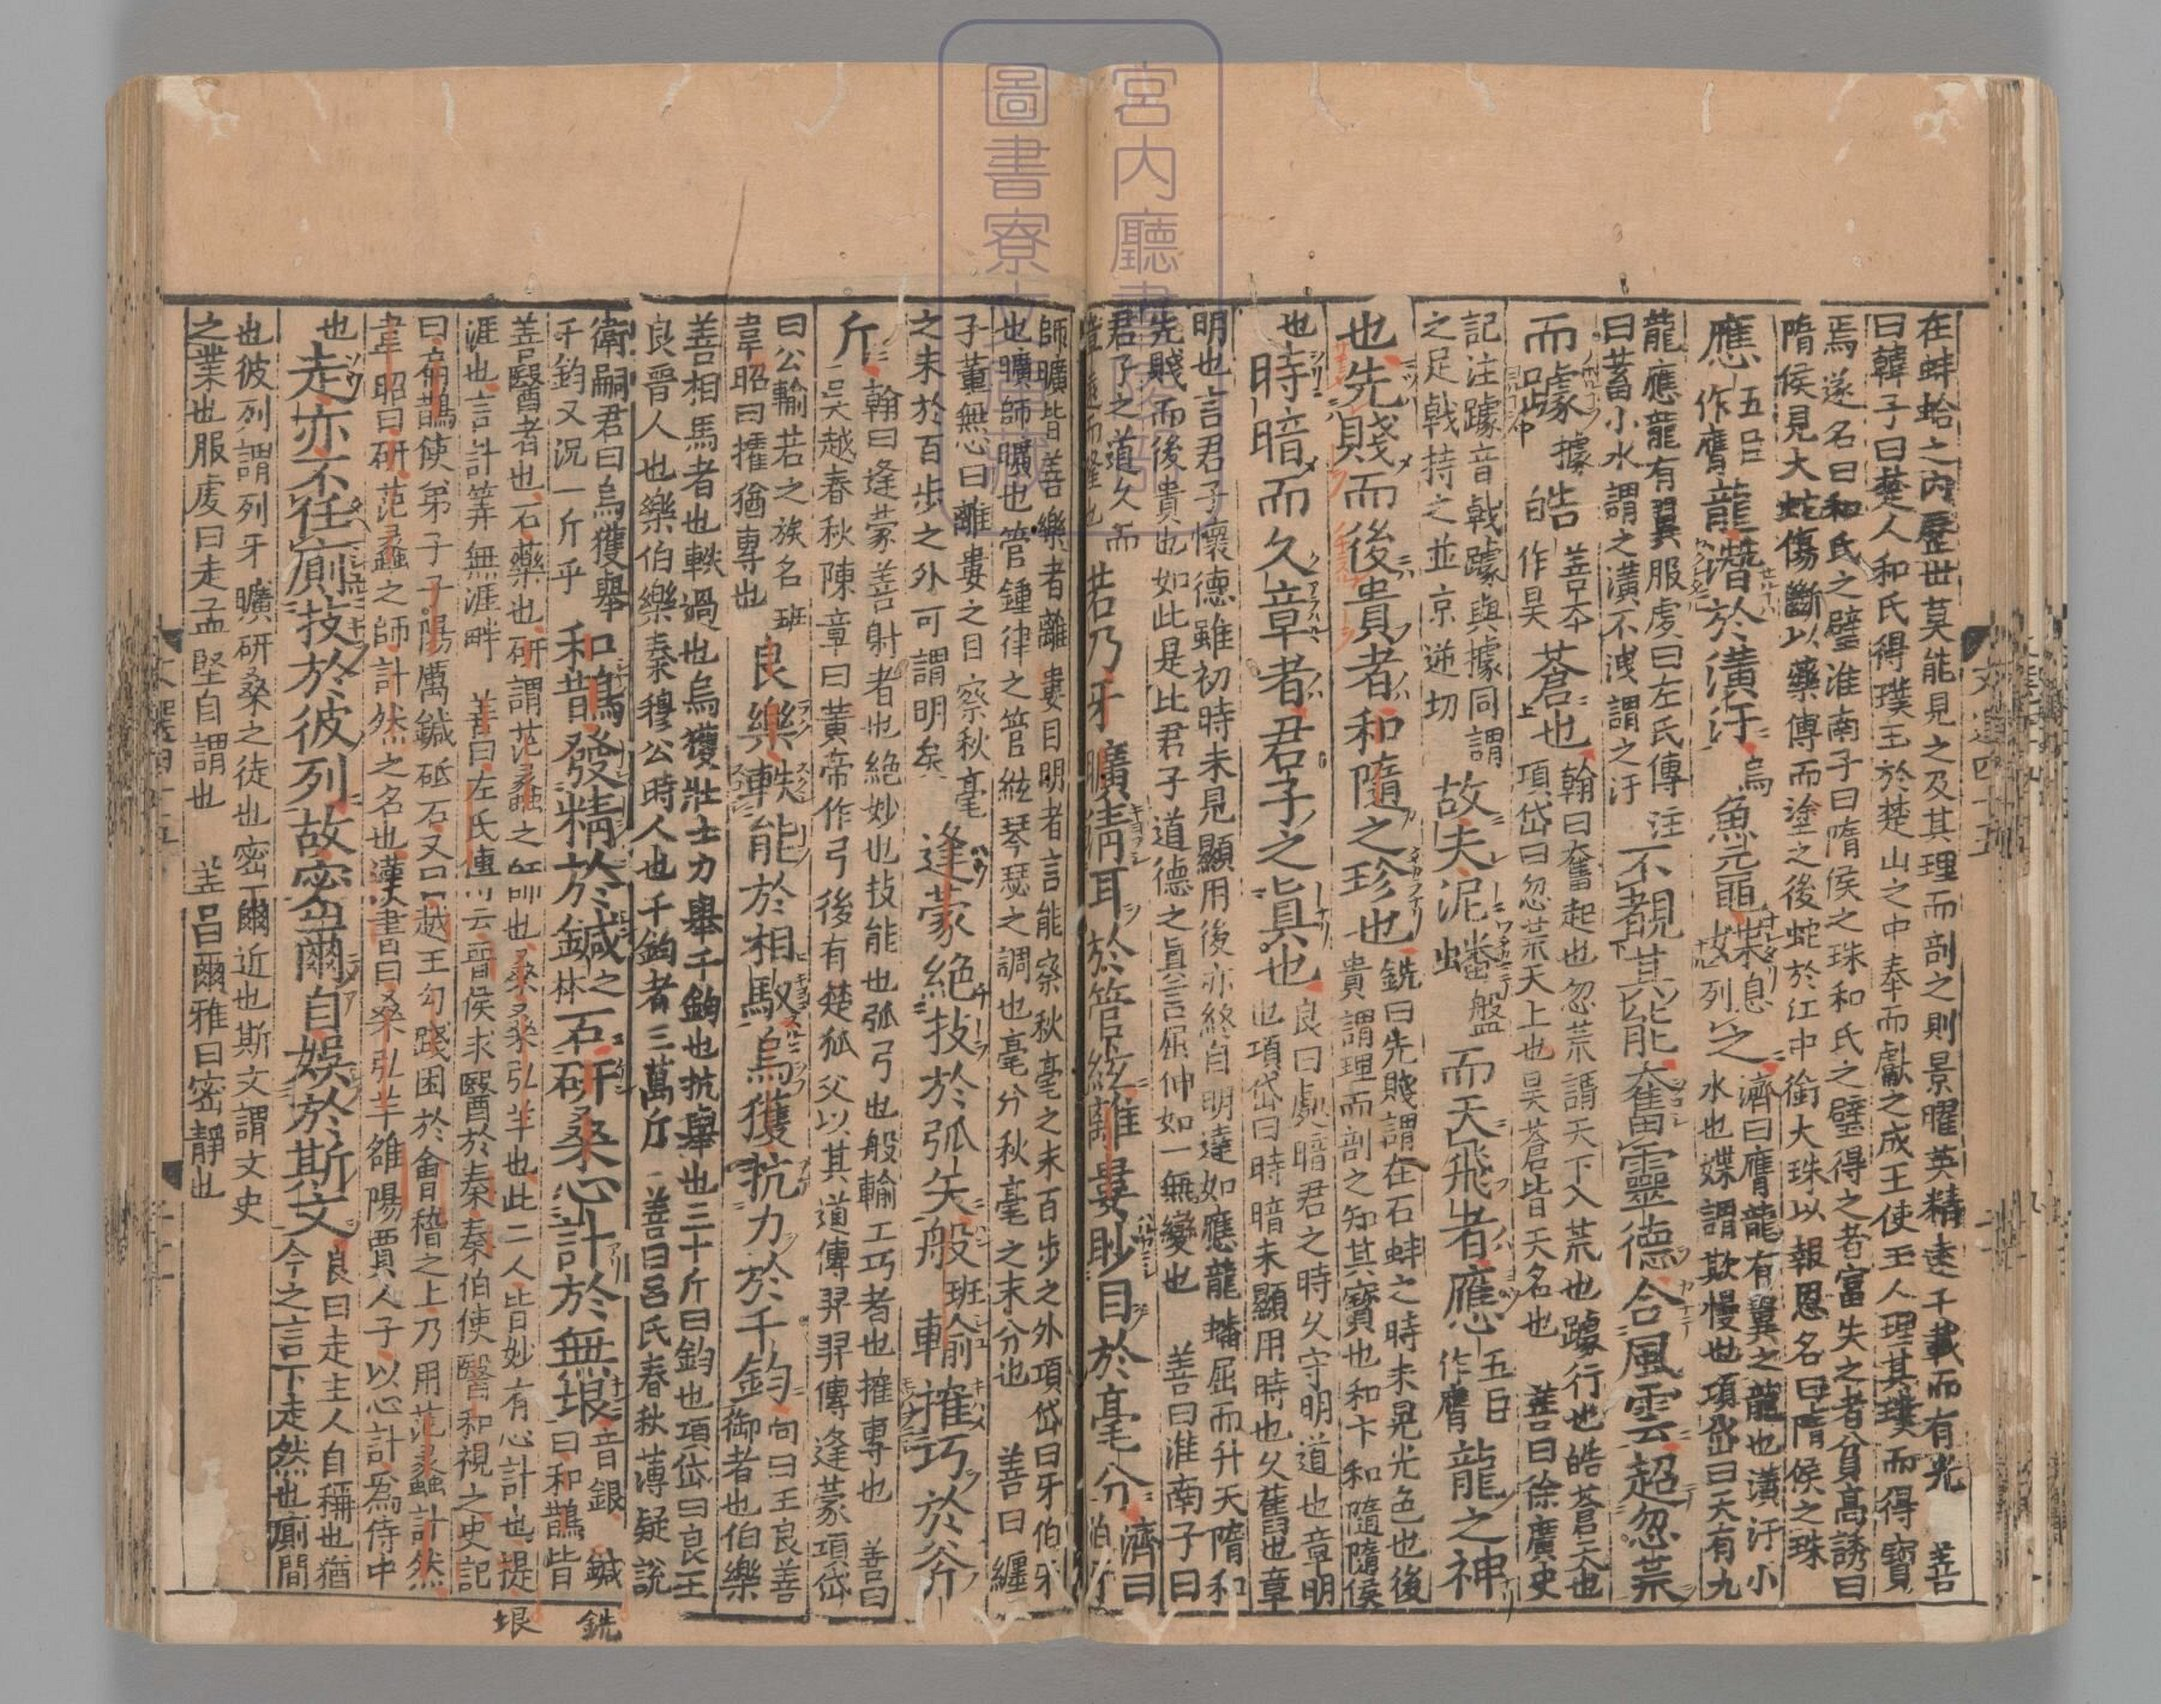 在蚌蛤之內歷世莫能見之及其理而剖之則景曜英精遠千載而有光 善
曰韓子曰楚人和氏得璞玉於楚山之中奉而獻之成王使王人理其璞而得寶
焉遂名曰和氏之璧淮南子曰隋侯之珠和氏之璧得之者富失之者貧高誘曰
隋侯見大蛇傷斷以藥傅而塗之後蛇於江中銜大珠以報恩名曰隋侯之珠
應五臣作膺龍潛於潢汙烏魚黿媟息列之
濟曰膺龍有翼之龍也潢汙小水也媟謂欺慢也項岱曰天有九
龍應龍有翼服虔曰左氏傳注
曰蓄小水謂之潢不洩謂之汙
不覩其能奮靈德合風雲超忽荒
而躆據皓善本作昊蒼也
翰曰奮起也忽荒謂天下入荒也躆行也皓蒼天也
項岱曰忽荒天上也昊蒼皆天名也 善曰徐廣史
記注躆音戟躆與據同謂
之足戟持之並京逆切
故夫泥蟠盤而天飛者應五臣作膺龍之神
也先賤而後貴者和隨之珍也
銑曰先賤謂在石蚌之時未晃光色也後
貴謂理而剖之知其寶也和卞和隨隨侯
也時暗而久章者君子之眞也
良曰處暗君之時久守明道也章明
也項岱曰時暗未顯用時也久舊也章
明也言君子懷德雖初時未見顯用後亦終自明達如應龍蟠屈而升天隋和
先賤而後貴也如此是比君子道德之眞言屈伸如一無變也 善曰淮南子曰
君子之道久而
章遠而隆也
若乃牙曠清耳於管絃離婁眇目於毫分
濟曰伯牙
師曠皆善樂者離婁目明者言能察秋毫之末百步之外項岱曰牙伯牙
也曠師曠也管鍾律之管絃琴瑟之調也毫分秋毫之末分也 善曰纏
子董無心曰離婁之目察秋毫
之末於百步之外可謂明矣
逢蒙絕技於弧矢般班輸榷巧於斧
斤
翰曰逢蒙善射者也絕妙也技能也弧弓也般輸工巧者也榷專也 善曰
吳越春秋陳章曰黃帝作弓後有楚狐父以其道傳羿羿傳逢蒙項岱
曰公輸若之族名班
韋昭曰攉猶專也
良樂軼能於相馭烏獲抗力於千鈞
向曰王良善御者也伯樂
善相馬者也軼過也烏獲壯士力舉千鈞也抗舉也三十斤曰鈞也項岱曰良王
良晉人也樂伯樂秦穆公時人也千鈞者三萬斤 善曰呂氏春秋薄疑說
衛嗣君曰烏獲舉
千鈞又況一斤乎
和鵲發精於鍼之林石研桑心計於無垠
音銀 鍼
曰和鵲皆
善醫者也石藥也研謂范蠡之師也桑桑弘羊也此二人皆妙有心計也提
涯也言計筭無涯畔 善曰左氏傳云晉侯求醫於秦秦伯使醫和視之史記
曰扁鵲使弟子子陽厲鍼砥石又曰越王勾踐困於會稽之上乃用范蠡計然
韋昭曰研范蠡之師計然之名也漢書曰桑弘羊雒陽賈人子以心計爲侍中
也走亦不任廁技於彼列故密爾自娛於斯文
良曰走主人自稱也猶今之言下走然也廁間
也彼列謂列牙曠研桑之徒也密爾近也斯文謂文史
之業也服虔曰走孟堅自謂也 善曰爾雅曰密靜也
銑
垠
宮内廳書
圖書寮